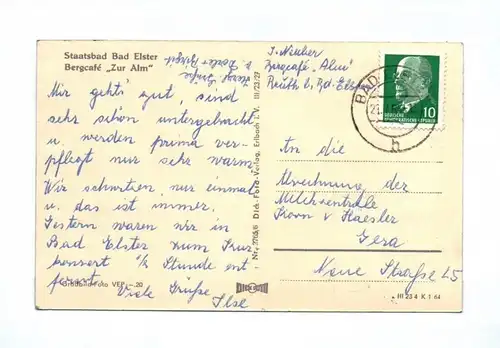 Staatsbad Bad Elster
Bergcafé „Zur Alm"
Mir geht's gut, sind
sehr schön untergebracht
u. werden prima ver-
pflegt nur sehr warm
Wir schwitzen nur einmal
u. das ist immer.
Gestern waren wir in
Bad Elster zum Kur-
konzert ½ Stunde ent-
fernt. Viele Grüße
Ilse
Großbild-Foto VEP 20
Nr. Dick-Foto-Verlag, Erlbach i. V. III/23/27
Bergcafé „Alm"
Reuth b. Bd. Elster
BAD
10
DEUTSCHE
DEMOKRATISCHE REPUBLIK
b
An die
Abrechnung der
Milchzentrale
Korn u. Haesler
Gera
Neue Straße 25
III 23 4 K 1 64